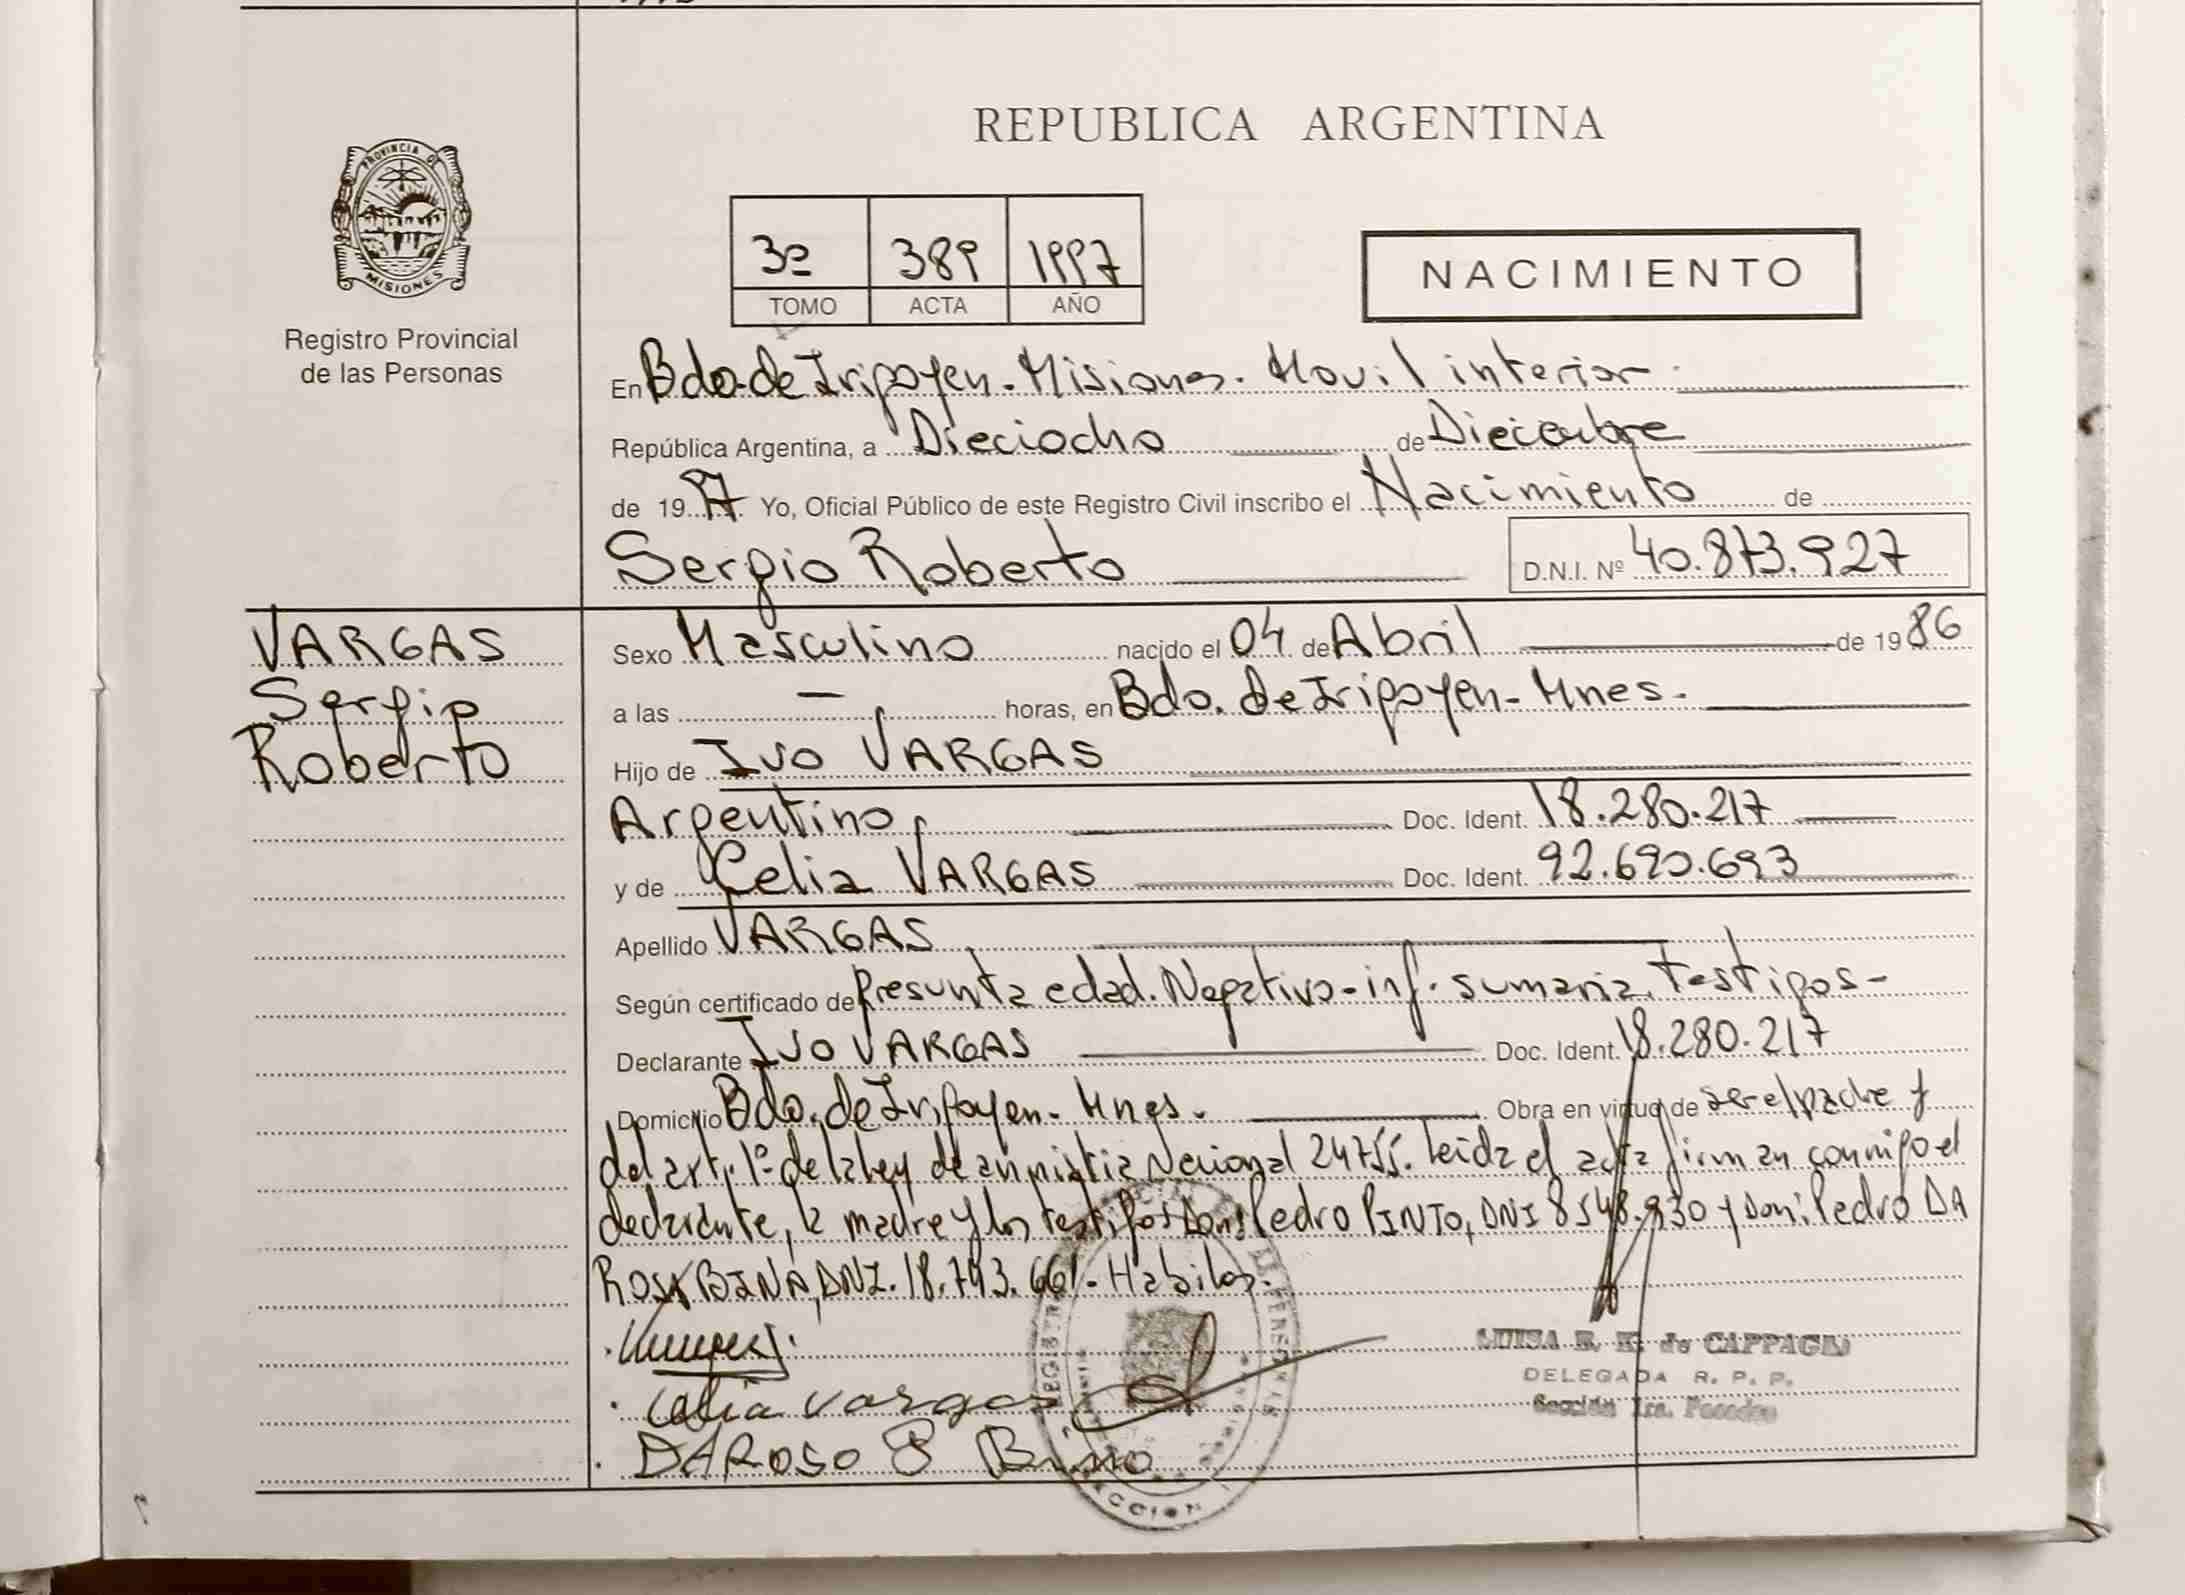 REPUBLICA ARGENTINA
PROVINCIA D
MISIONES
Registro Provincial
de las Personas
3º 389 1997
TOMO ACTA AÑO
NACIMIENTO
En Bdo. de Irigoyen - Misiones. Movil interior.
República Argentina, a Dieciocho de Diciembre
de 1997 Yo, Oficial Público de este Registro Civil inscribo el Nacimiento de
Sergio Roberto D.N.I. Nº 40.873.927
VARGAS
Sergio
Roberto
Sexo Masculino nacido el 04 de Abril de 1986
a las — horas, en Bdo. de Irigoyen - Mnes.
Hijo de Ivo VARGAS
Argentino, Doc. Ident. 18.280.217
y de Celia VARGAS Doc. Ident. 92.690.693
Apellido VARGAS
Según certificado de Presunta edad. Negativo - inf. sumaria. Testigos -
Declarante Ivo VARGAS Doc. Ident. 18.280.217
Domicilio Bdo. de Irigoyen - Mnes. Obra en virtud de ser el padre y
del art. 1º de la Ley de amnistia Nacional 24755. Leida el acta firman conmigo el
declarante, la madre y los testigos Don: Pedro PINTO, DNI 8548.930 y Don: Pedro DA
ROSA BINA, DNI. 18.793.661 - Habiles.
Celia Vargas
DAROSO P
LUISA E. K. de CAPPAGLI
DELEGADA R. P. P.
Sección 1ra. Posadas